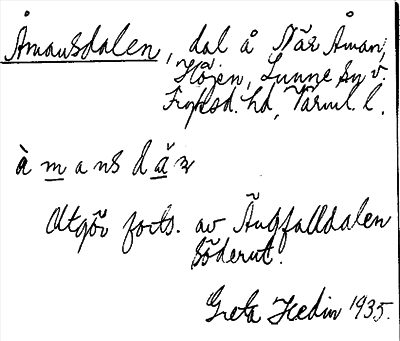 Åmansdalen, dal å När Åman,
Höjen, Lunne sn v.
Fryksd. hd, Värml. l.
à m a ns d
Utgör forts. av Ängfalldalen
söderut.
Greta Hedin 1935.